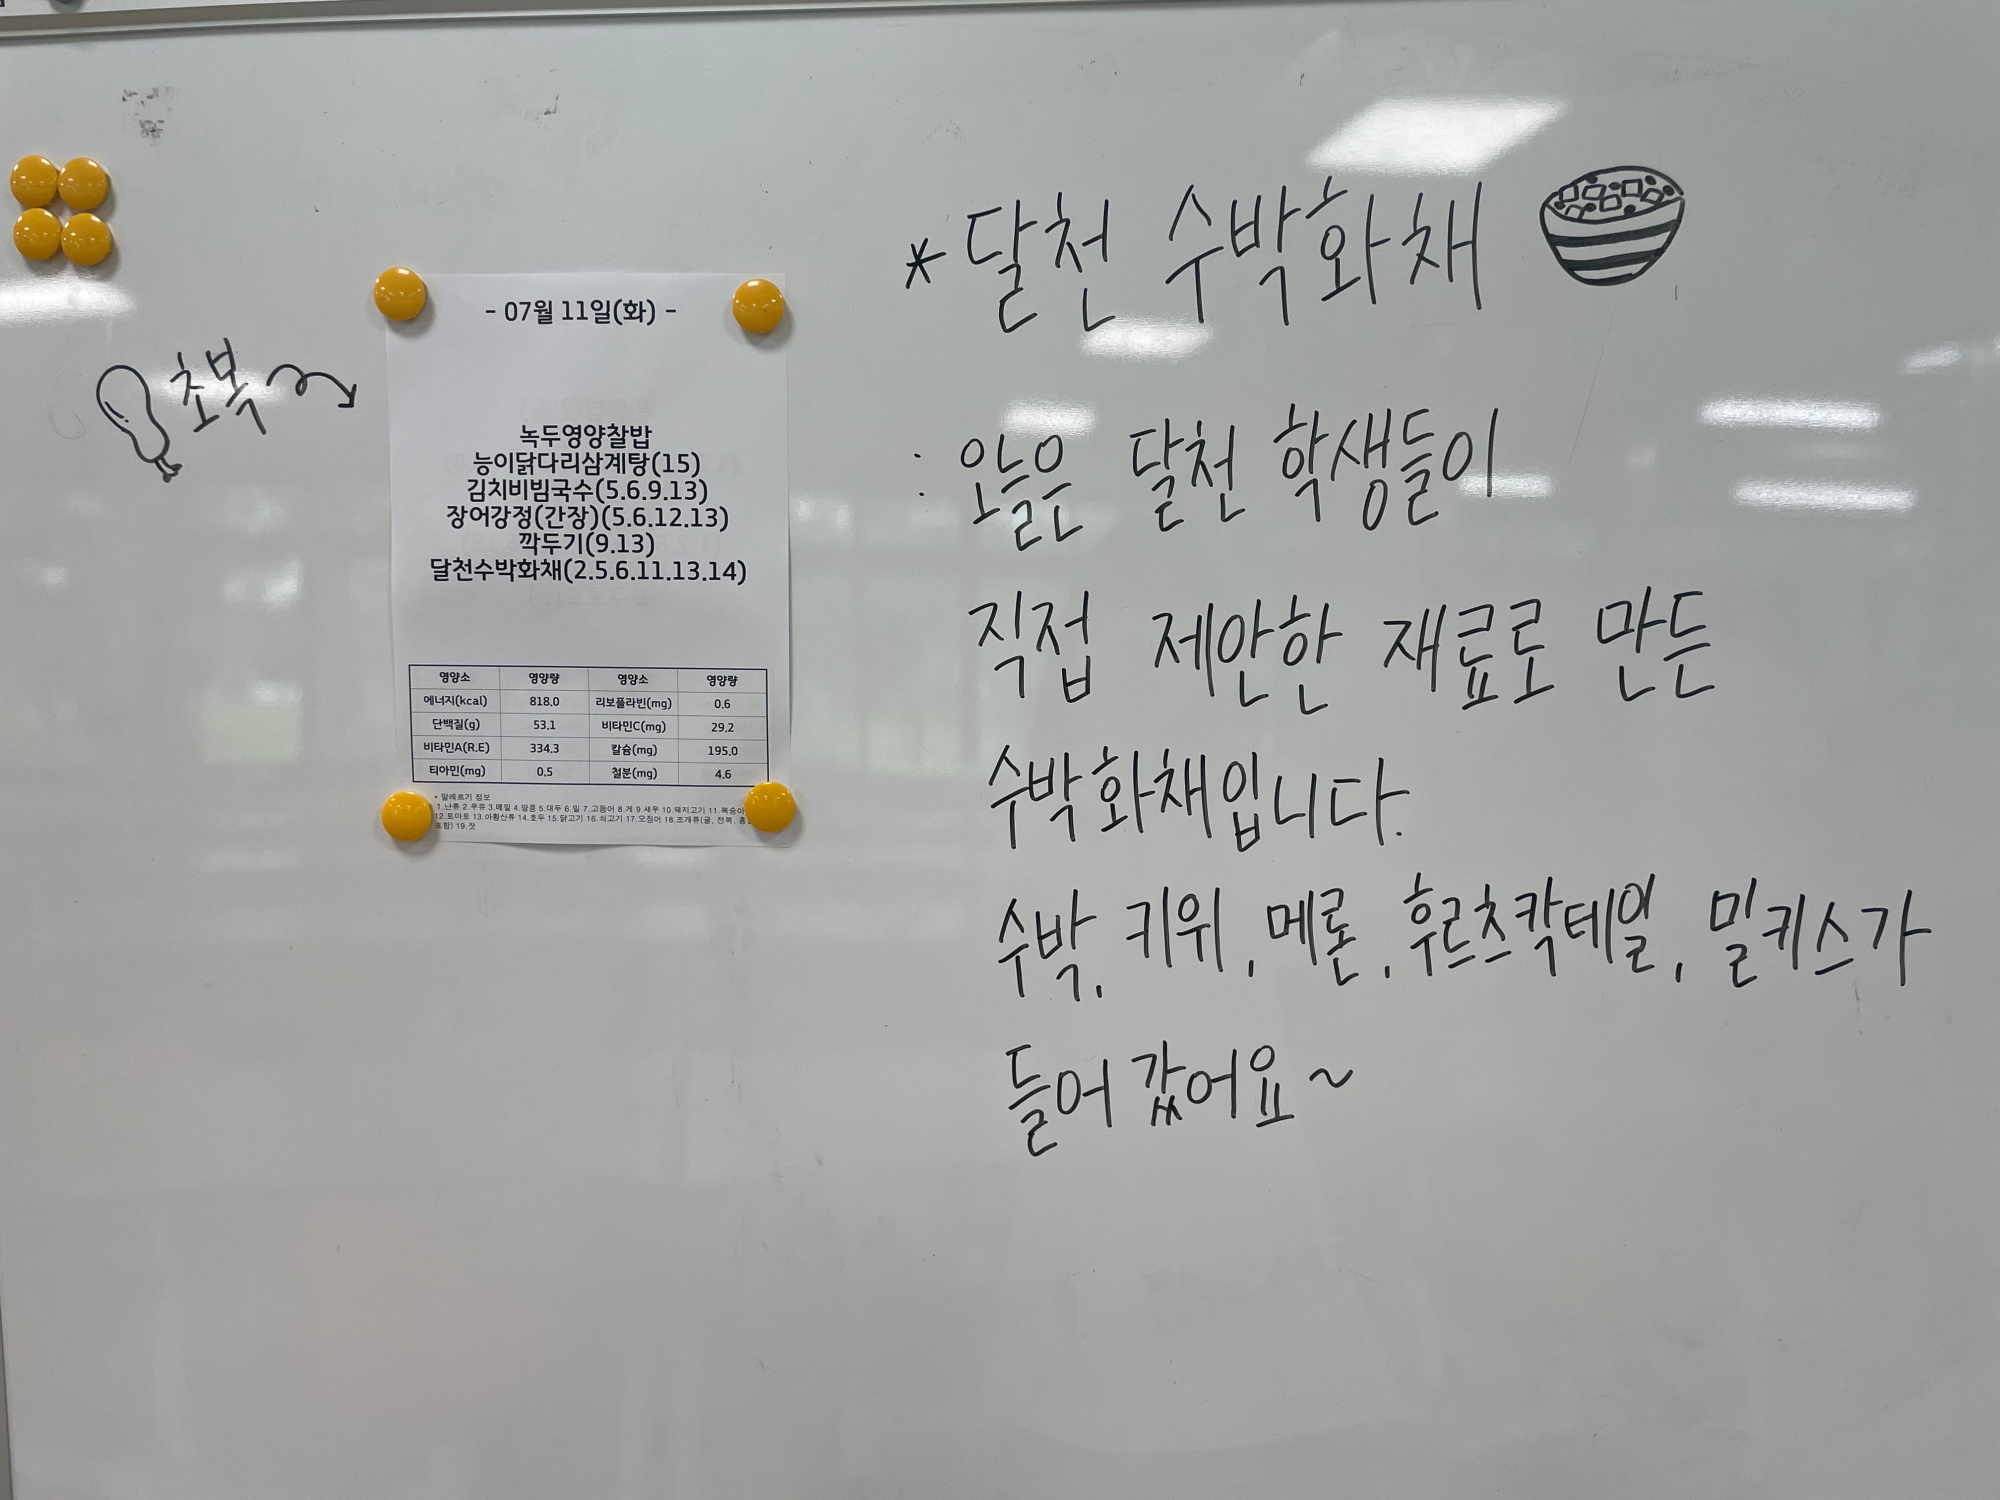 초복
- 07월 11일(화) -
녹두영양찰밥
능이닭다리삼계탕(15)
김치비빔국수(5.6.9.13)
장어강정(간장)(5.6.12.13)
깍두기(9.13)
달천수박화채(2.5.6.11.13.14)
영양소 영양량 영양소 영양량
에너지(kcal) 818.0 리보플라빈(mg) 0.6
단백질(g) 53.1 비타민C(mg) 29.2
비타민A(R.E) 334.3 칼슘(mg) 195.0
티아민(mg) 0.5 철분(mg) 4.6
* 알레르기 정보
1.난류 2.우유 3.메밀 4.땅콩 5.대두 6.밀 7.고등어 8.게 9.새우 10.돼지고기 11.복숭아
12.토마토 13.아황산류 14.호두 15.닭고기 16.쇠고기 17.오징어 18.조개류(굴, 전복,
포함) 19.잣
* 달천 수박화채
: 오늘은 달천 학생들이
직접 제안한 재료로 만든
수박화채입니다.
수박, 키위, 메론, 후르츠칵테일, 밀키스가
들어갔어요~